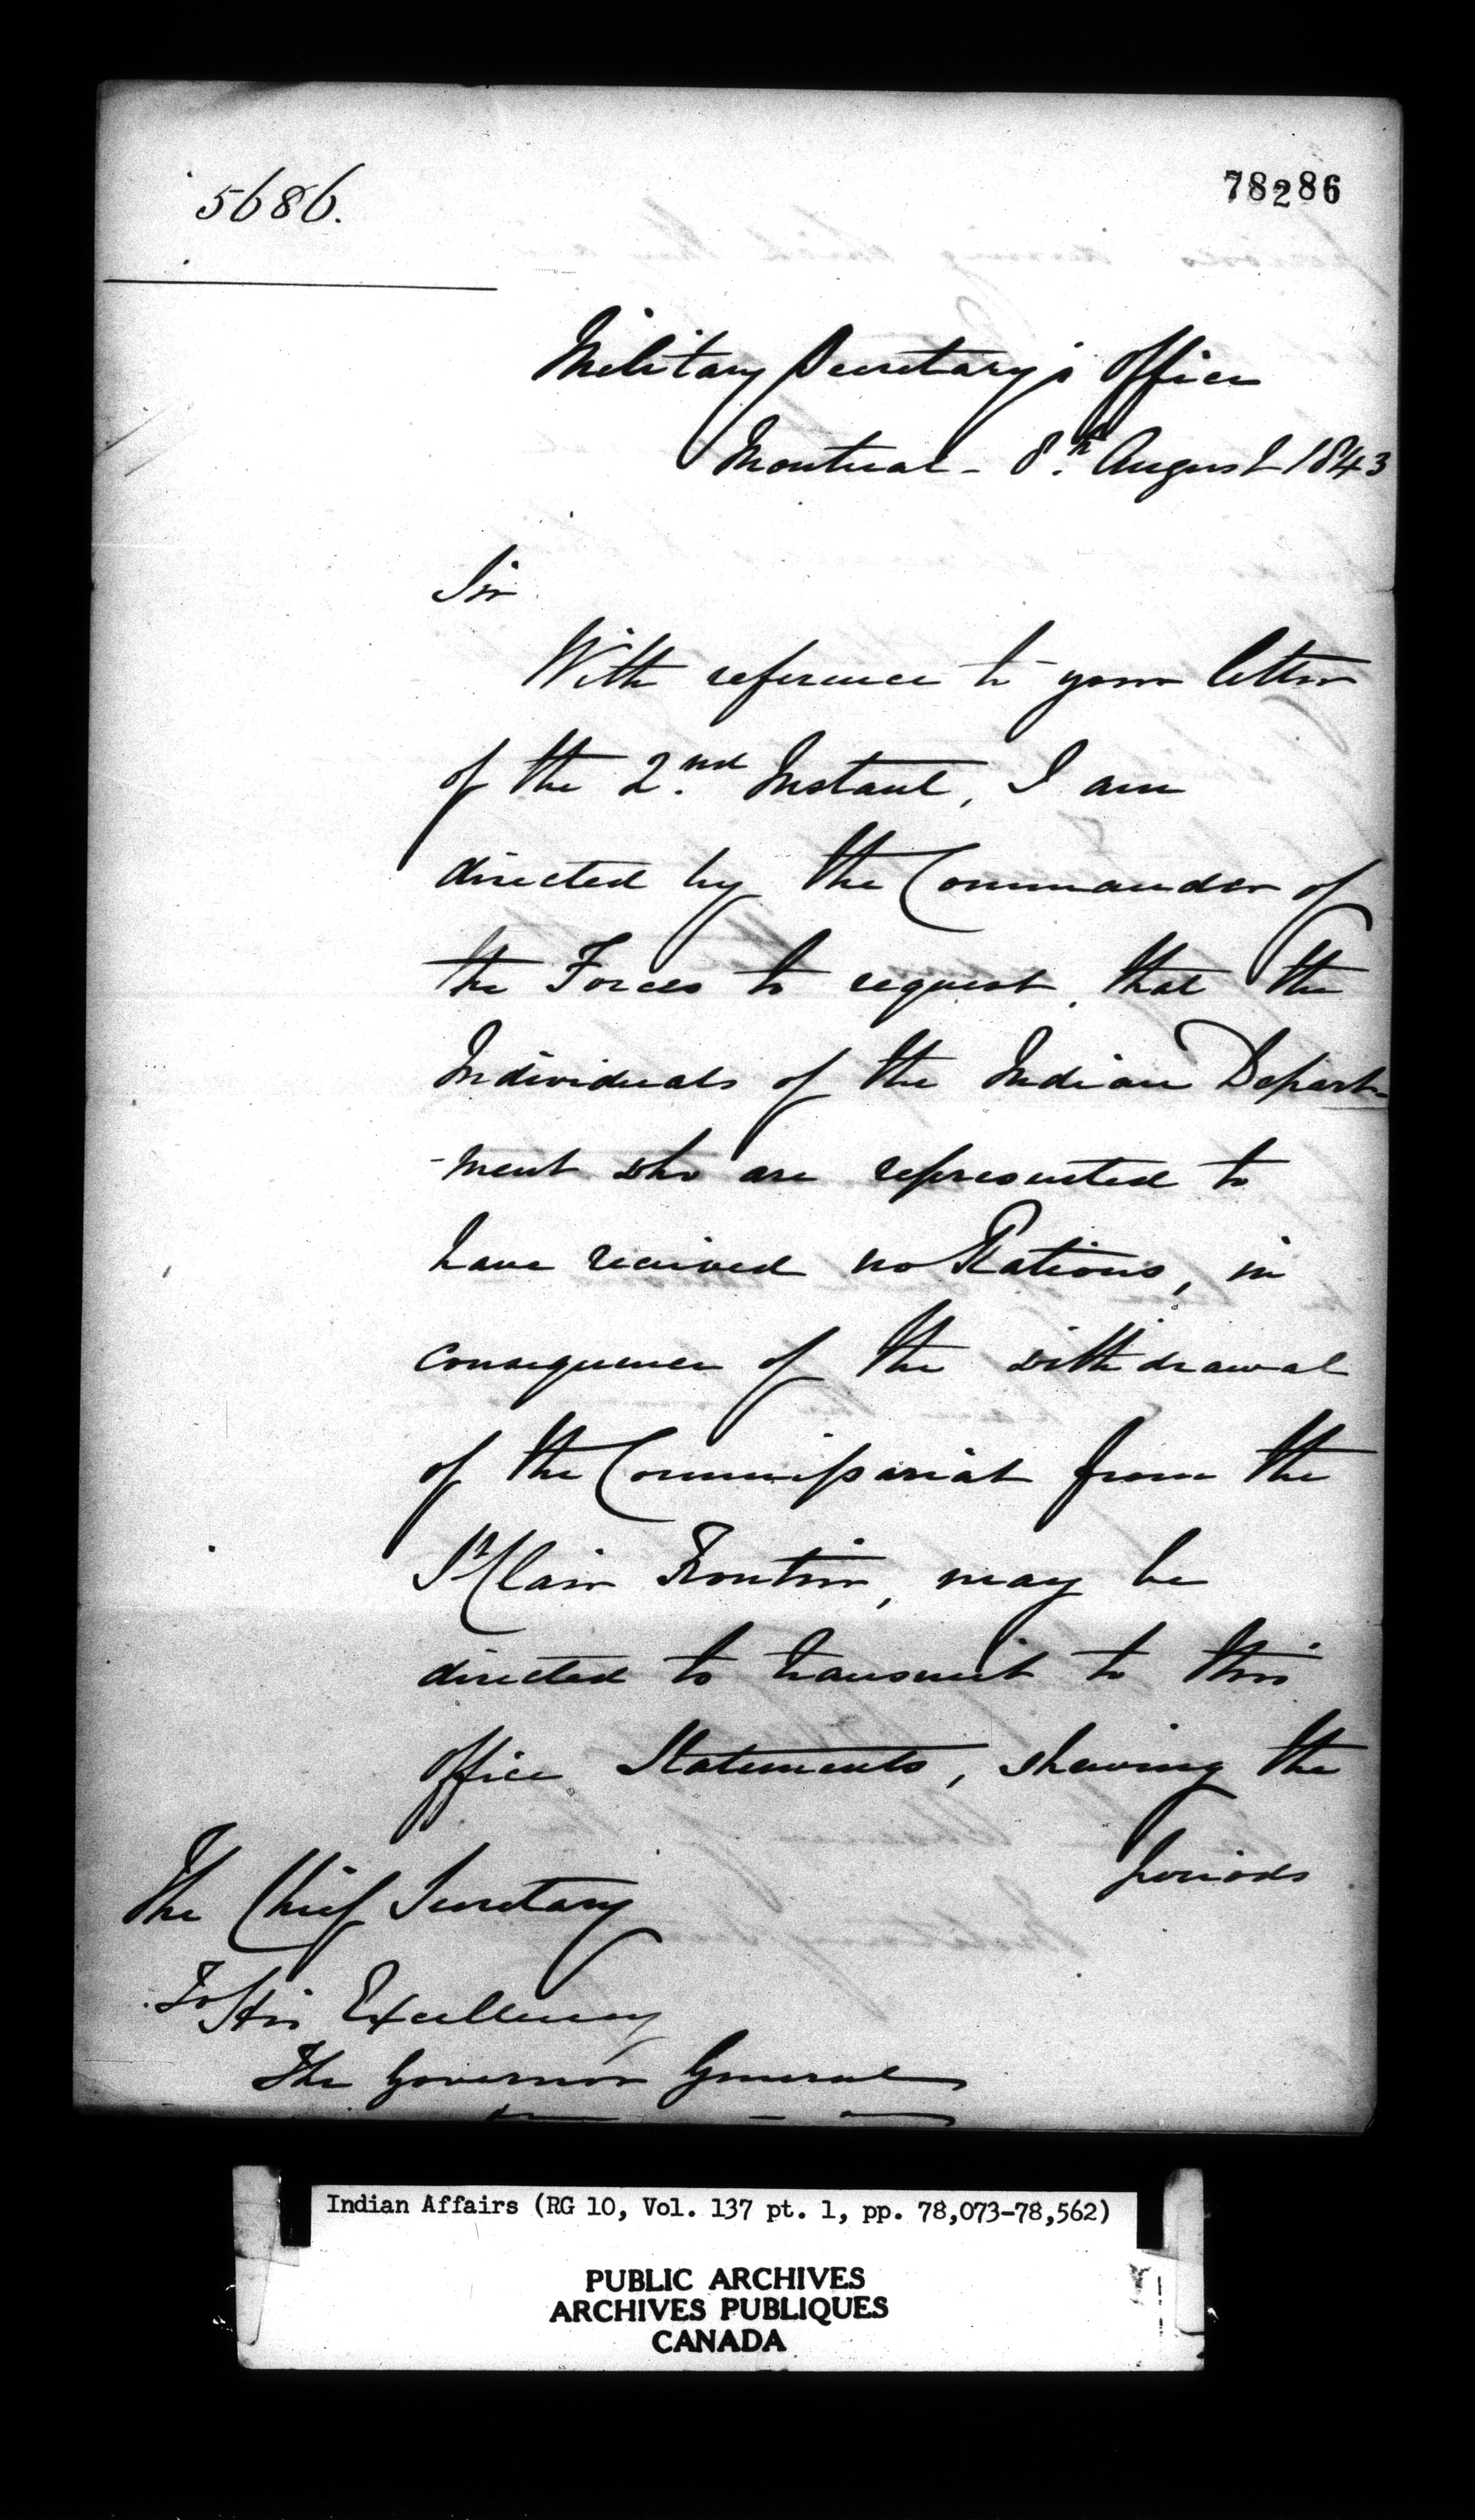 5686.
78286
Military Secretary's Office
Montreal - 8.th August 1843
Sir
With reference to your letter
of the 2.nd Instant, I am
directed by the Commander of
the Forces to request, that the
Individuals of the Indian Depart-
-ment who are represented to
have received no Rations, in
consequence of the withdrawal
of the Commissariat from the
St Clair Frontier, may be
directed to transmit to this
office Statements, shewing the
periods
The Chief Secretary
To His Excellency
The Governor General
Indian Affairs (RG 10, Vol. 137 pt. 1, pp. 78,073-78,562)
PUBLIC ARCHIVES
ARCHIVES PUBLIQUES
CANADA